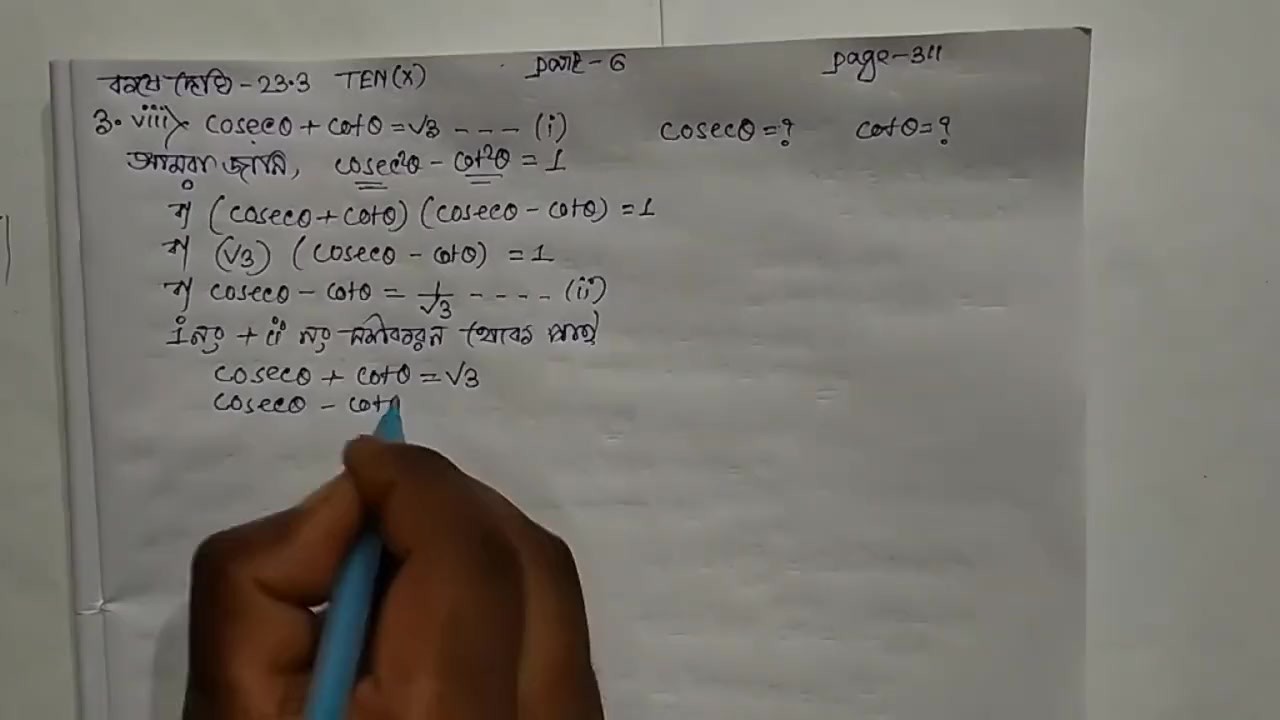 কষে দেখি - 23.3 TEN(X) part - 6 page - 311
3. viii) cosecθ + cotθ = √3 - - - - (i) cosecθ = ? cotθ = ?
আমরা জানি, cosec²θ - cot²θ = 1
বা, (cosecθ + cotθ) (cosecθ - cotθ) = 1
বা, (√3) (cosecθ - cotθ) = 1
বা, cosecθ - cotθ = 1/√3 - - - - (ii)
i নং + ii নং সমীকরন থেকে পাই
cosecθ + cotθ = √3
cosecθ - cotθ